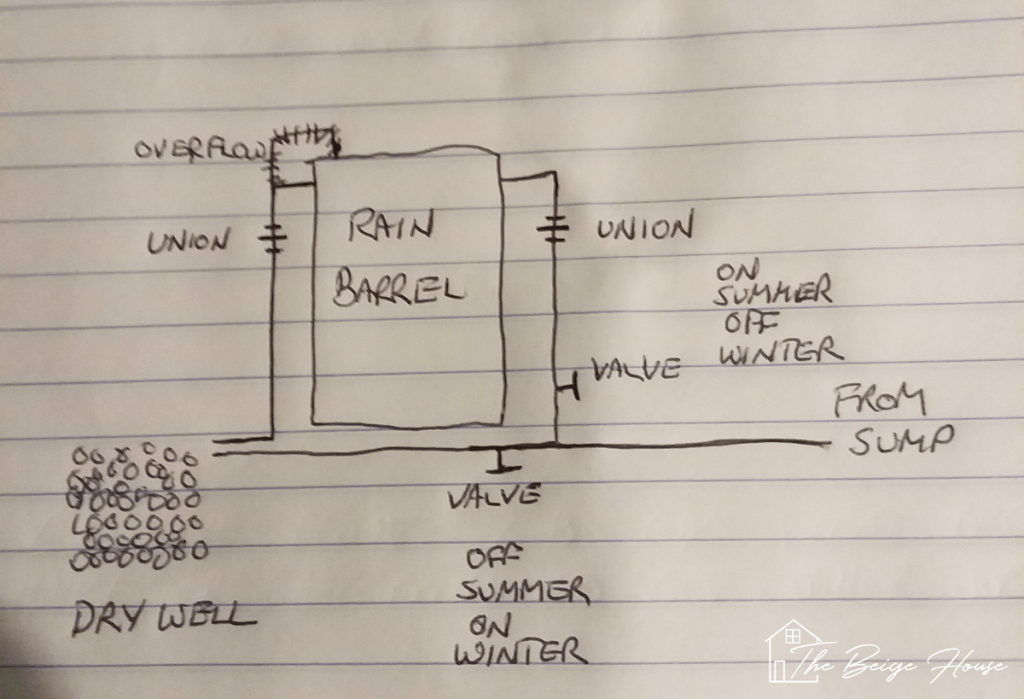 OVERFLOW
UNION
RAIN
BARREL
UNION
ON
SUMMER
OFF
WINTER
VALVE
FROM
SUMP
VALVE
OFF
SUMMER
ON
WINTER
DRY WELL
The Beige House